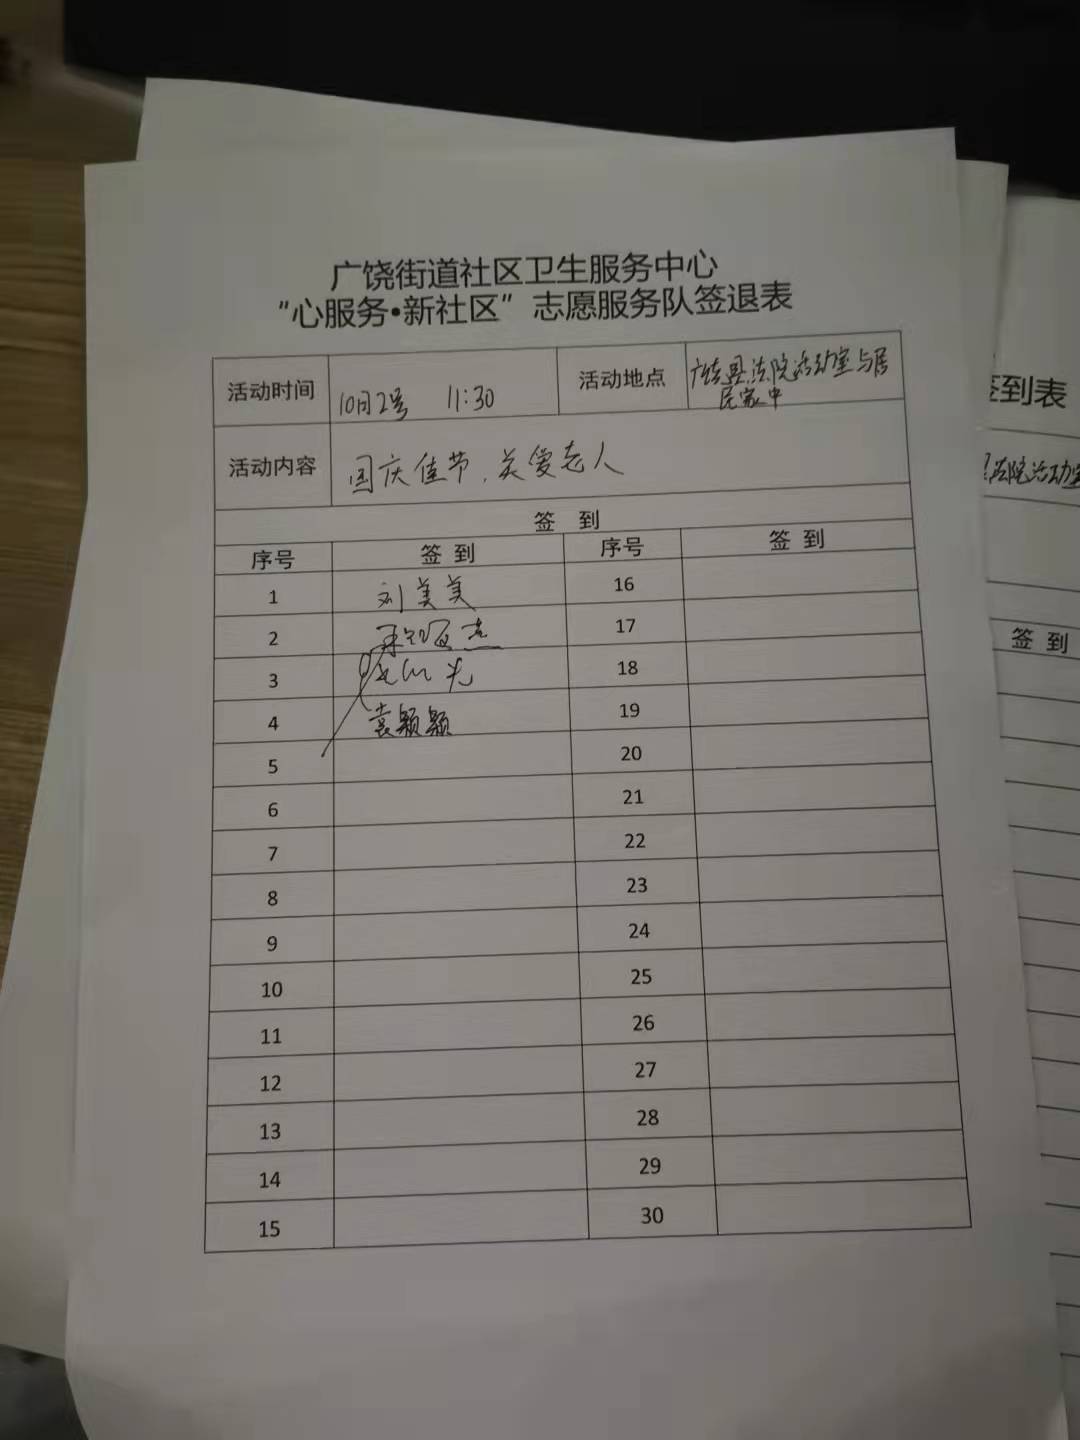 广饶街道社区卫生服务中心
“心服务•新社区”志愿服务队签退表
活动时间 10月2号 11:30 活动地点 广饶县法院活动室与居
民家中
活动内容 国庆佳节、关爱老人
签 到
序号 签 到 序号 签 到
1 刘美美 16
2 17
3 18
4 袁颖颖 19
5 20
6 21
7 22
8 23
9 24
10 25
11 26
12 27
13 28
14 29
15 30
签到表
法院活动室
签 到